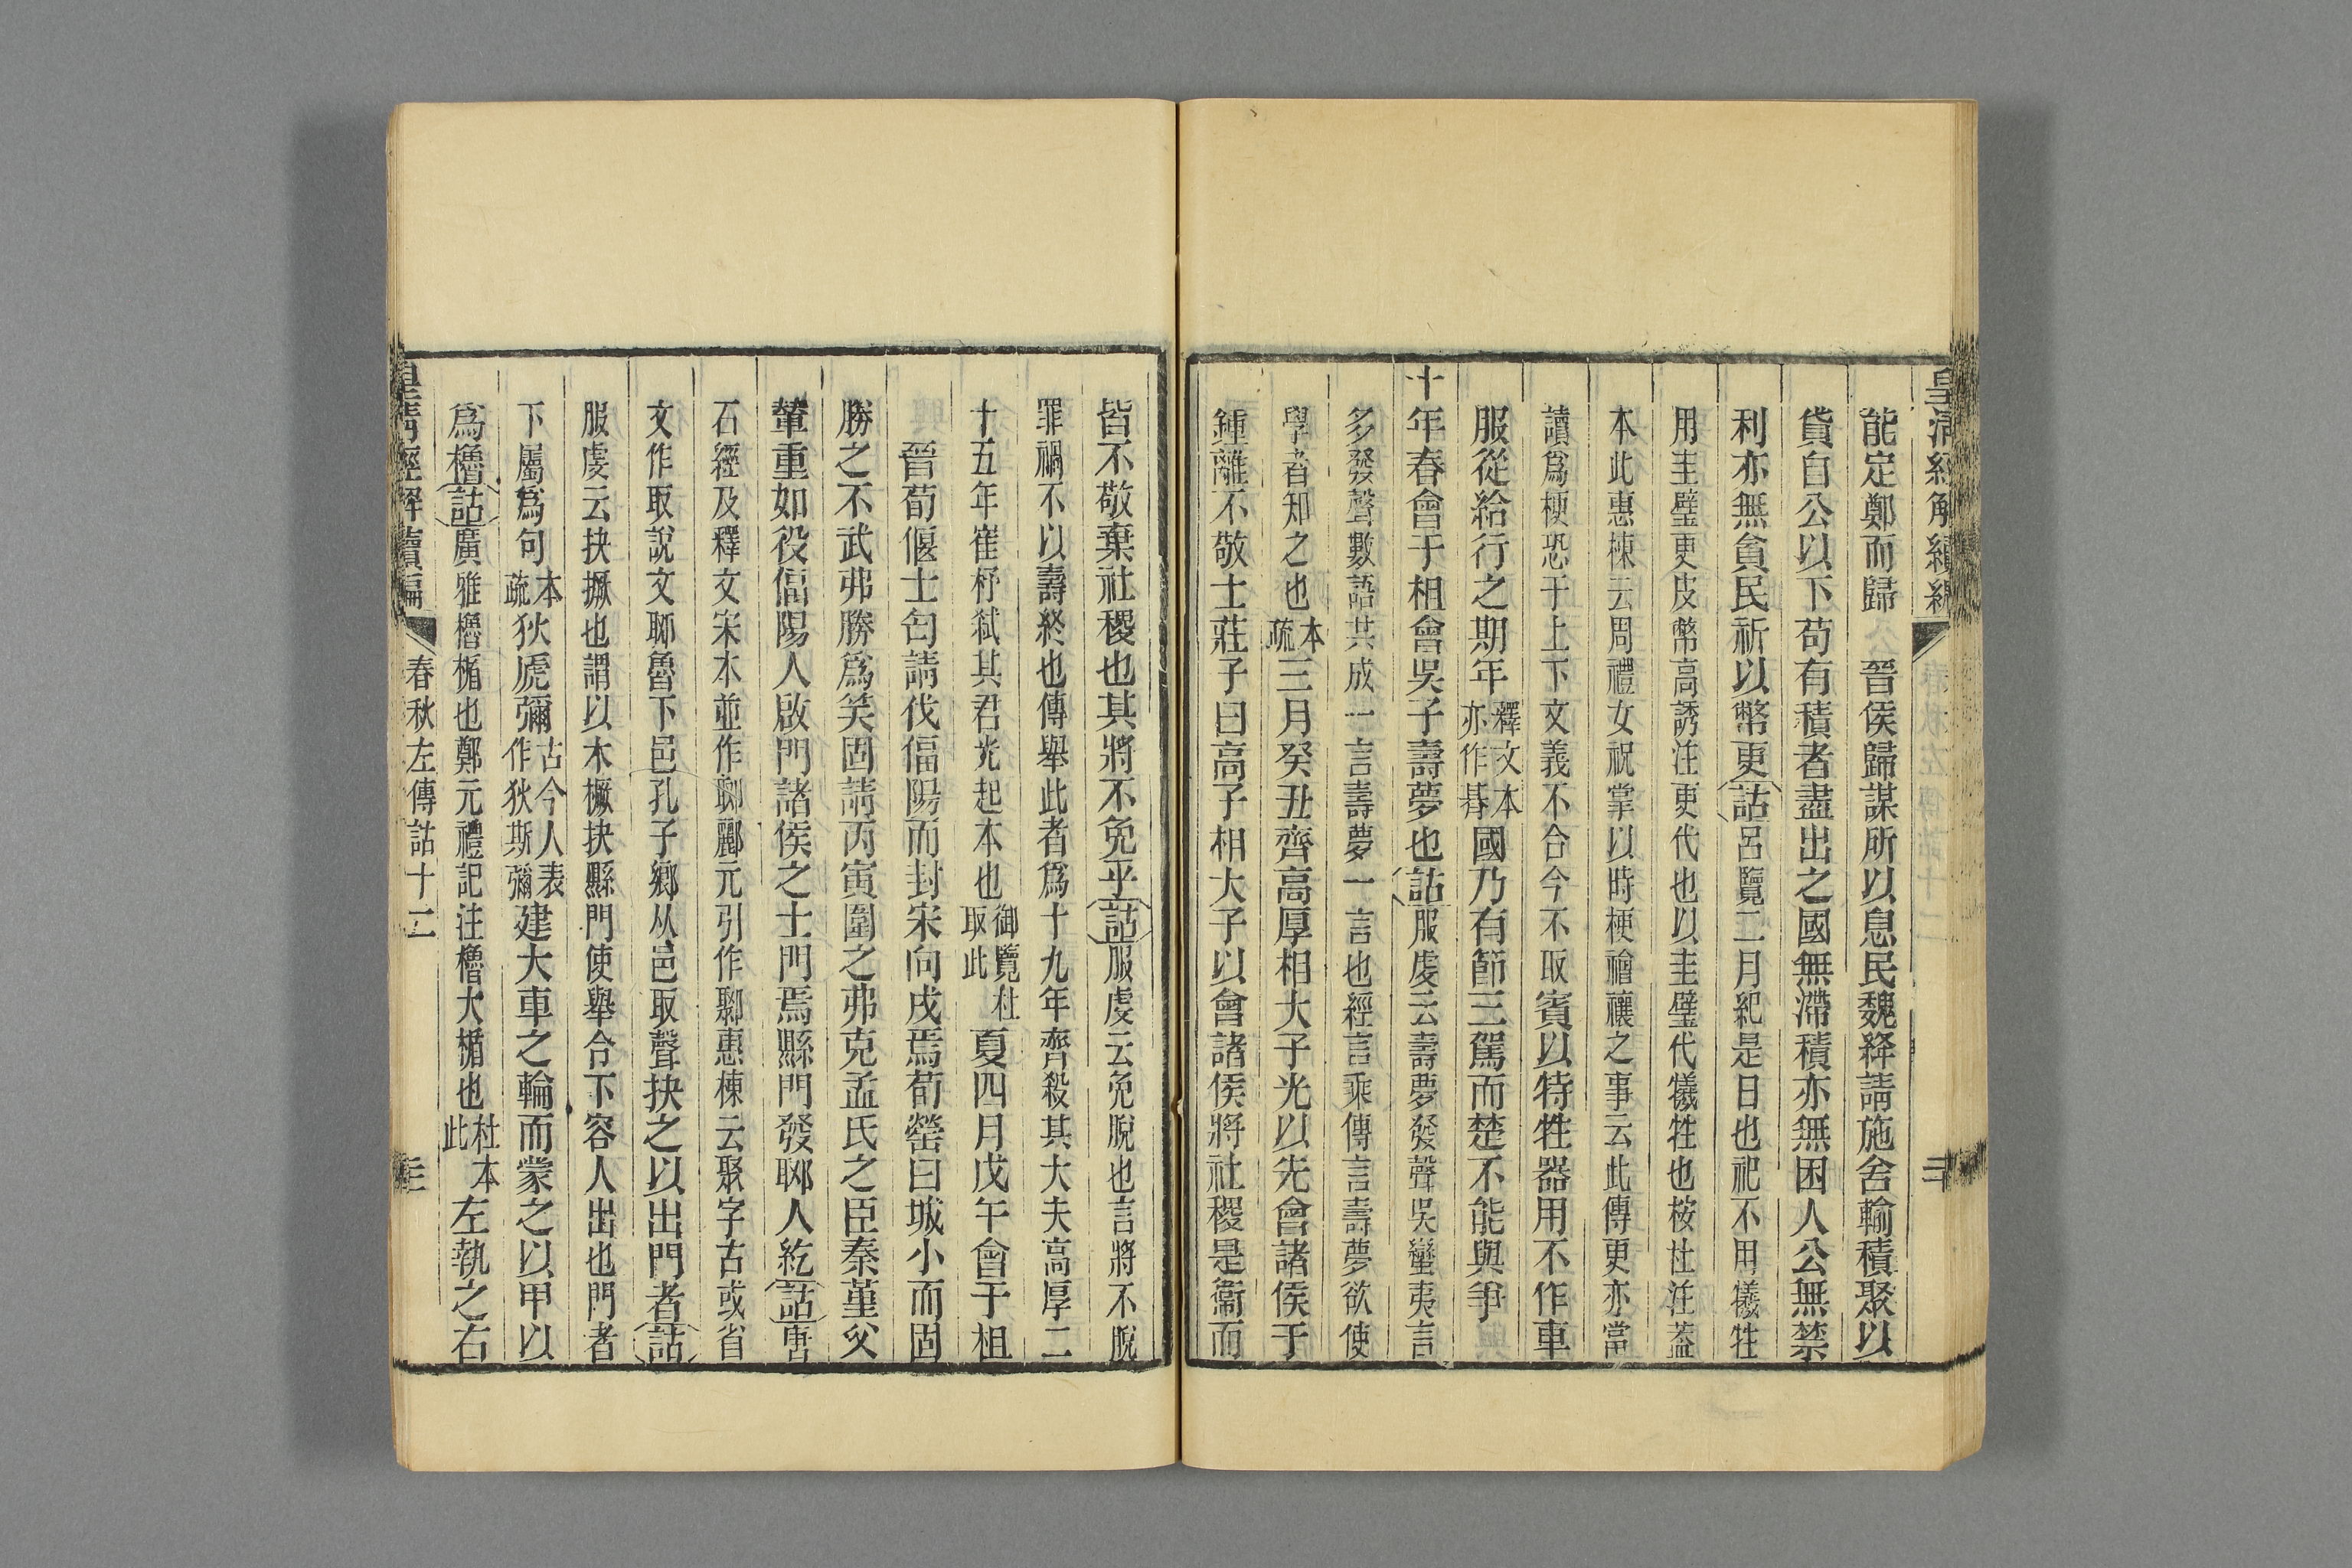 皇清經解續編
能定鄭而歸 晉侯歸謀所以息民魏絳請施舍輸積聚以
貸自公以下苟有積者盡出之國無滯積亦無困人公無禁
利亦無貪民祈以幣更詁呂覽二月紀是日也祀不用犧牲
用圭璧更皮幣高誘注更代也以圭璧代犧牲也桉杜注蓋
本此惠棟云周禮女祝掌以時梗禬禳之事云此傳更亦當
讀爲梗恐于上下文義不合今不取賓以特牲器用不作車
服從給行之期年釋文本亦作朞國乃有節三駕而楚不能與爭
十年春會于柤會吳子壽夢也詁服虔云壽夢發聲吳蠻夷言
多發聲數語共成一言壽夢一言也經言乘傳言壽夢欲使
學者知之也本疏三月癸丑齊高厚相大子光以先會諸侯于
鍾離不敬士莊子曰高子相大子以會諸侯將社稷是衞而
皆不敬棄社稷也其將不免乎詁服虔云免脫也言將不脫
罪禍不以壽終也傳舉此者爲十九年齊殺其大夫高厚二
十五年崔杼弑其君光起本也御覽杜取此夏四月戊午會于柤
晉荀偃士匄請伐偪陽而封宋向戌焉荀罃曰城小而固
勝之不武弗勝爲笑固請丙寅圍之弗克孟氏之臣秦堇父
輦重如役偪陽人啟門諸侯之士門焉縣門發郰人紇詁唐
石經及釋文宋本並作郰酈元引作鄹惠棟云聚字古或省
文作取說文郰魯下邑孔子鄉从邑取聲抉之以出門者詁
服虔云抉撅也謂以木橛抉縣門使舉令下容人出也門者
下屬爲句本疏狄虒彌古今人表作狄斯彌建大車之輪而蒙之以甲以
爲櫓詁廣雅櫓楯也鄭元禮記注櫓大楯也杜本此左執之右
皇淸經解續編 春秋左傳詁十二